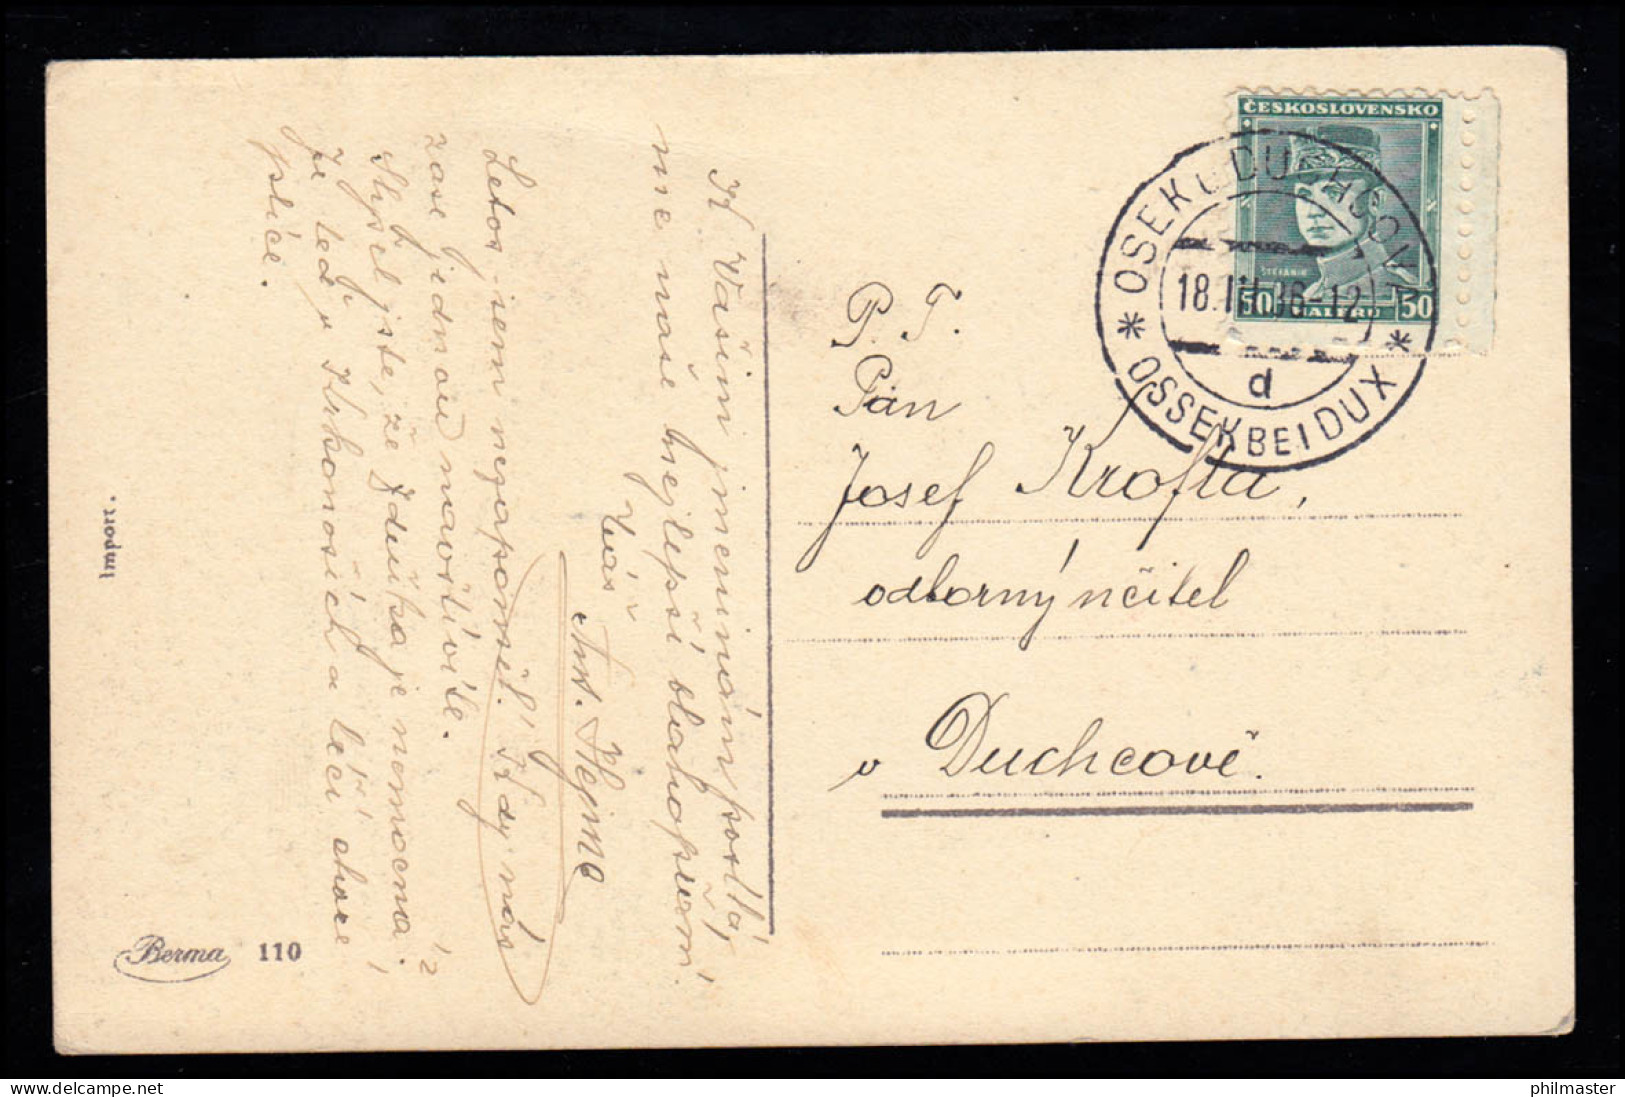 K Vašim jmeninám posílá-
me naše nejlepší blahopřání
Váš
Ant. Hejma
Letos jsem nezapomněl! Kdy nás
zase jednou navštívíte.
Slyšel jste, že Zdeňka je nemocná.
Je teď v Krkonoších a léčí choré
plíce.
Import.
Berma 110
ČESKOSLOVENSKO
ŠTEFÁNIK
50 HALÉŘŮ 50
OSEK U DUCHCOVA
18.III.36-12
d
* OSSEK BEI DUX *
P. T.
Pan
Josef Krofta,
odborný učitel
v Duchcově.
philmaster